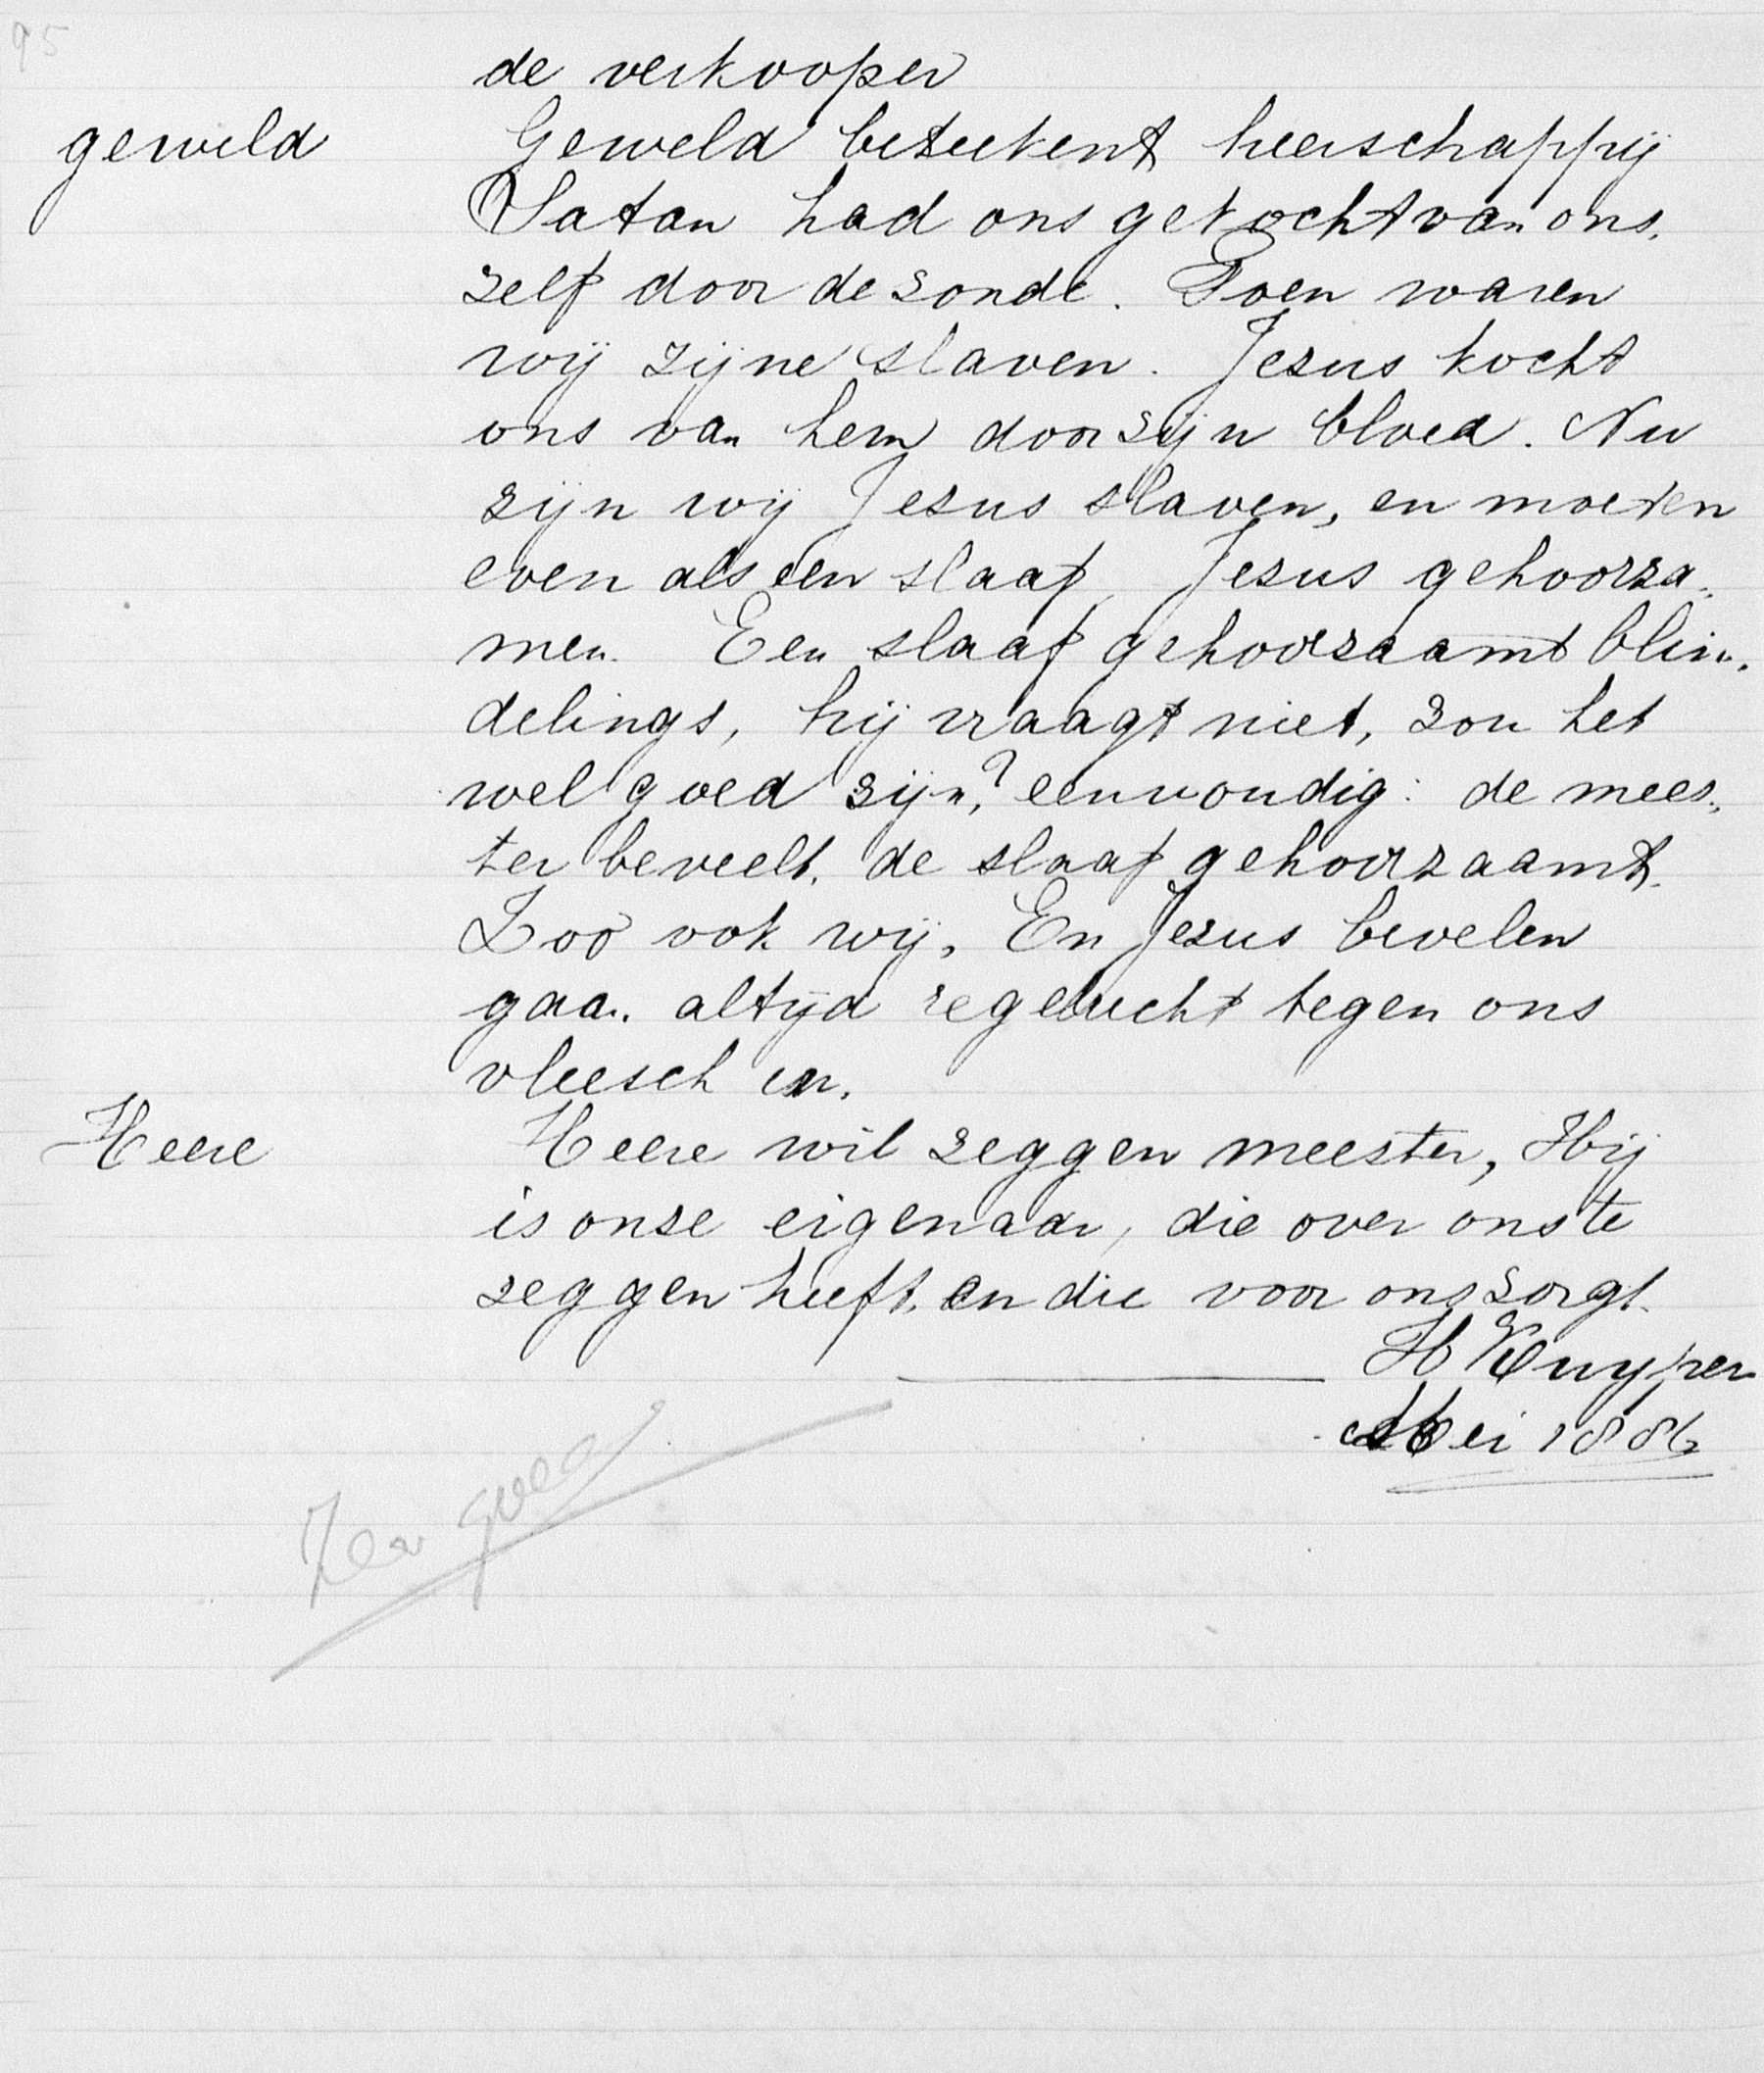 95
de verkooper
geweld Geweld beteekent heerschappij
Satan had ons gekocht van ons,
zelf door de zonde. Toen waren
wij zijne slaven. Jezus kocht
ons van hem door zijn bloed. Nu
zijn wij Jezus slaven, en moeten
even als een slaaf Jezus gehoorza„
men. Een slaaf gehoorzaamt blin„
delings, hij vraagt niet, zou het
wel goed zijn? eenvoudig: de mees„
ter beveelt, de slaaf gehoorzaamt.
Zoo ook wij. En Jezus bevelen
gaan altijd regelrecht tegen ons
vleesch in.
Heere Heere wil zeggen meester, Hij
is onze eigenaar, die over ons te
zeggen heeft, en die voor ons zorgt.
H Kuyper
Mei 1886
Zeer goed